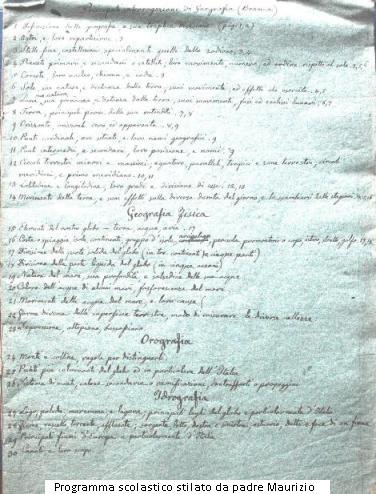 Principali interrogazioni di Geografia (Esame)
1 Definizione della geografia e sua
2 Astri, e loro ripartizione. 3
3 Stelle fisse, costellazioni specialmente quelle dello zodiaco, 3, 4
4 Pianeti primari e secondari o satelliti, loro movimento, numero, ed ordine rispetto al sole
5 Comete, loro nucleo, chioma, e coda
6 Sole, sua natura, e distanza dalla terra, suoi movimenti, ed effetti che
7 Luna, sua grandezza e distanza dalla terra, suoi movimenti, fasi ed eclissi lunari. 6, 7
8 Terra, principali prove della sua rotondità. 7, 8
9 Orizzonte, orizzonte vero ed apparente. 8, 9
10 Punti cardinali, ove situati, e loro nomi geografici. 9
11 Punti intermedi, e secondari, loro posizione, e nomi. 9
12 Circoli terrestri minori e massimi, equatore, paralleli, tropici e zone terrestri, circoli
meridiani, e primo meridiano. 10, 11
13 Latitudine e longitudine, loro gradi e divisione di essi. 12, 13
14 Movimenti della terra, e suoi effetti sulla diversa durata del giorno, e lo scambiarsi delle stagioni
Geografia Fisica
15 Elementi del nostro globo – terra, acqua, aria. 17
16 Coste o spiagge, isole, continenti, gruppo d'isole, arcipelago, penisola, promontorio o capo, istmo, stretto, golfo
17 Divisione delle parti solide del globo (in tre continenti)(e cinque parti)
18 Divisione della parte liquida del globo (in cinque oceani)
19 Natura del mare, sua profondità e salsedine delle sue acque
20 Colore dell'acqua di alcuni mari, fosforescenza del mare
21 Movimenti delle acque del mare, e loro cause (
22 Forma diversa della superficie terrestre, modo di misurare le diverse altezze
23 Depressione, altopiano, bassopiano
Orografia
24 Monti e colline, regole per distinguerli
25 Punti più culminanti del globo ed in particolare dell'Italia
26 Sistema di monti, catene, secondarie o ramificazioni, contrafforti o propaggini
Idrografia
27 Lago, palude, maremma, e laguna, principali laghi del globo e particolarmente d'Italia
28 Fiume, ruscello, torrente, affluente, sorgente, letto, destra e sinistra, estuario, delta e foce di un fiume
29 Principali fiumi d'Europa e particolarmente d'Italia
30 Canali e loro scopo
Programma scolastico stilato da padre Maurizio